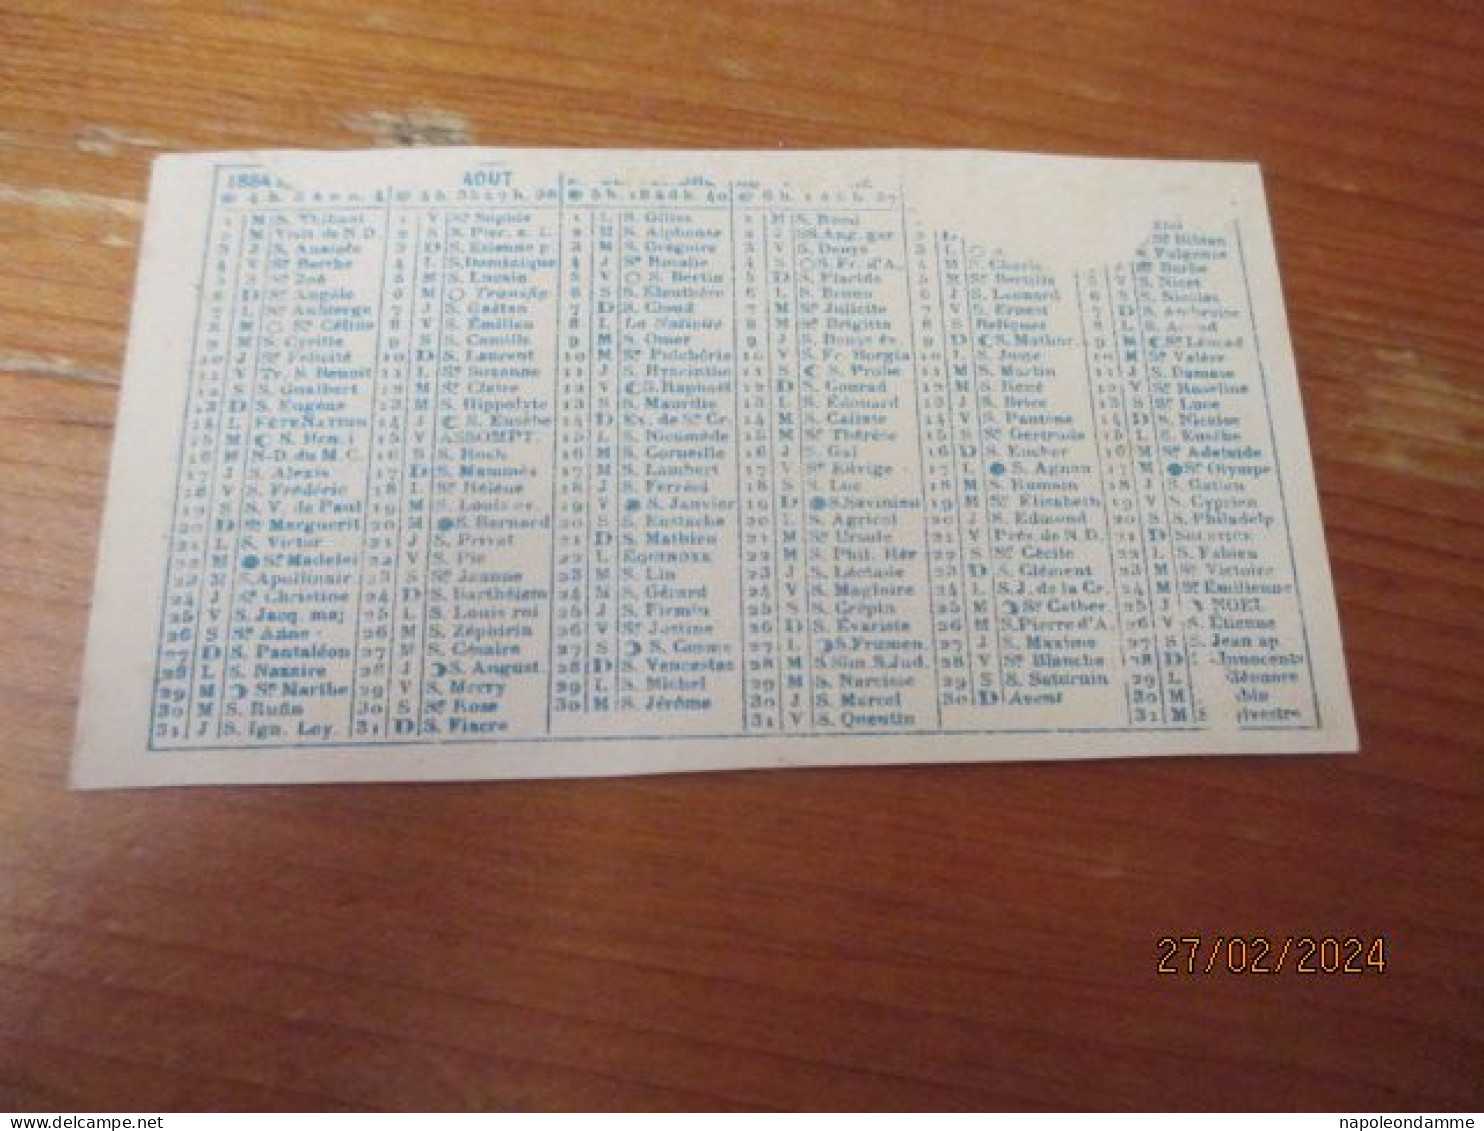 1884
AOUT
M S. Thibaut
M Visit de N.D.
J S. Anatole
V Ste Berthe
S Ste Zoé
D Ste Angèle
L Ste Aubierge
M Ste Céline
M S. Cyrille
J Ste Félicité
V Tr. S. Benoit
S S. Gualbert
13 D S. Eugène
14 L FÊTE NATION
15 M S. Henri
16 M N-D. du M. C.
17 J S. Alexis
18 V S. Frédéric
19 S S. V. de Paul
20 D Ste Marguerit
21 L S. Victor
22 M Ste Madelei
23 M S. Apollinair
24 J Ste Christine
25 V S. Jacq. maj
26 S Ste Anne
27 D S. Pantaléon
28 L S. Nazaire
29 M Ste Marthe
30 M S. Rufin
31 J S. Ign. Loy.
1 V Ste Sophie
2 S S. Pier. è. L.
3 D S. Etienne p.
4 L S. Dominique
5 M
6 M Transfig
7 J S. Gaétan
8 V S. Émilien
9 S S. Camille
10 D S. Laurent
11 L Ste Suzanne
12 M Ste Claire
13 M S. Hippolyte
14 J S. Eusèbe
15 V ASSOMPT.
16 S S. Roch
17 D S. Mammès
18 L Ste Hélène
19 M S. Louis ev.
20 M S. Bernard
21 J S. Privat
22 V S.
23 S Ste Jeanne
24 D S. Barthélem
25 L S. Louis roi
26 M S. Zéphirin
27 M S. Césaire
28 J S. August
29 V S. Merry
30 S Ste Rose
31 D S. Fiacre
1 L S. Gilles
2 M S. Alphonse
3 M S. Grégoire
4 J Ste Rosalie
5 V S. Bertin
6 S S. Eleuthère
7 D S. Cloud
8 L La Nativité
9 M S. Omer
10 M Ste Pulchérie
11 J S. Hyacinthe
12 V S. Raphaël
13 S S. Maurille
14 D Ex. de Ste Cr.
15 L S. Nicomède
16 M S. Corneille
17 M S. Lambert
18 J S. Ferréol
19 V S. Janvier
20 S S. Eustache
21 D S. Mathieu
22 L EQUINOXE
23 M S. Lin
24 M S. Gérard
25 J S. Firmin
26 V Ste Justine
27 S S. Cosme
28 D S. Venceslas
29 L S. Michel
30 M S. Jérôme
1 M S. Rémi
2 J SS. Ang. gar
3 V S. Denys
4 S S. Fr. d'A.
5 D S. Placide
6 L S. Bruno
7 M Ste Julie
8 M Ste Brigitte
9 J S. Denys év.
10 V S. Fr. Borgia
11 S S. Probe
12 D S. Conrad
13 L S. Édouard
14 M S. Calixte
15 M Ste Thérèse
16 J S. Gal
17 V Ste Edvige
18 S S. Luc
19 D S. Savinien
20 L S. Agricol
21 M Ste Ursule
22 M S. Phil. Hér
23 J S. Léotade
24 V S. Magloire
25 S S. Crépin
26 D S. Évariste
27 L S. Frumen.
28 M S. Sim. S. Jud.
29 M S. Narcisse
30 J S. Marcel
31 V S. Quentin
4 M S. Charle
5 M Ste Bertille
6 J S. Léonard
7 V S. Ernest
8 S Reliques
9 D S. Mathur.
10 L S. Juste
11 M S. Martin
12 M S. René
13 J S. Brice
14 V S. Pantène
15 S Ste Gertrude
16 D S. Eucher
17 L S. Agnan
18 M S. Romain
19 M Ste Elisabeth
20 J S. Edmond
21 V Prés. de N.D.
22 S Ste Cécile
23 D S. Clément
24 L S. J. de la Cr.
25 M Ste Cather.
26 M S. Pierre d'A.
27 J S. Maxime
28 V Ste Blanche
29 S S. Saturnin
30 D Avent
Eloi
Ste Bibian
Fulgence
Ste Barbe
S. Nicet
6 S S. Nicolas
7 D S. Ambroise
8 L
9 M Ste Léocad
10 M Ste Valère
11 J S. Damase
12 V Ste Roseline
13 S Ste Luce
14 D S. Nicaise
15 L S. Eusèbe
16 M Ste Adelaïde
17 M Ste Olympe
18 J S. Gatien
19 V S. Cyprien
20 S S. Philadelp.
21 D SOLSTICE
22 L S. Fabien
23 M Ste Victoire
24 M Ste Emilienne
25 J NOEL
26 V S. Étienne
27 S S. Jean ap.
28 D Innocents
29 L Éléonore
30 M
31 M
27/02/2024
napoleondamme